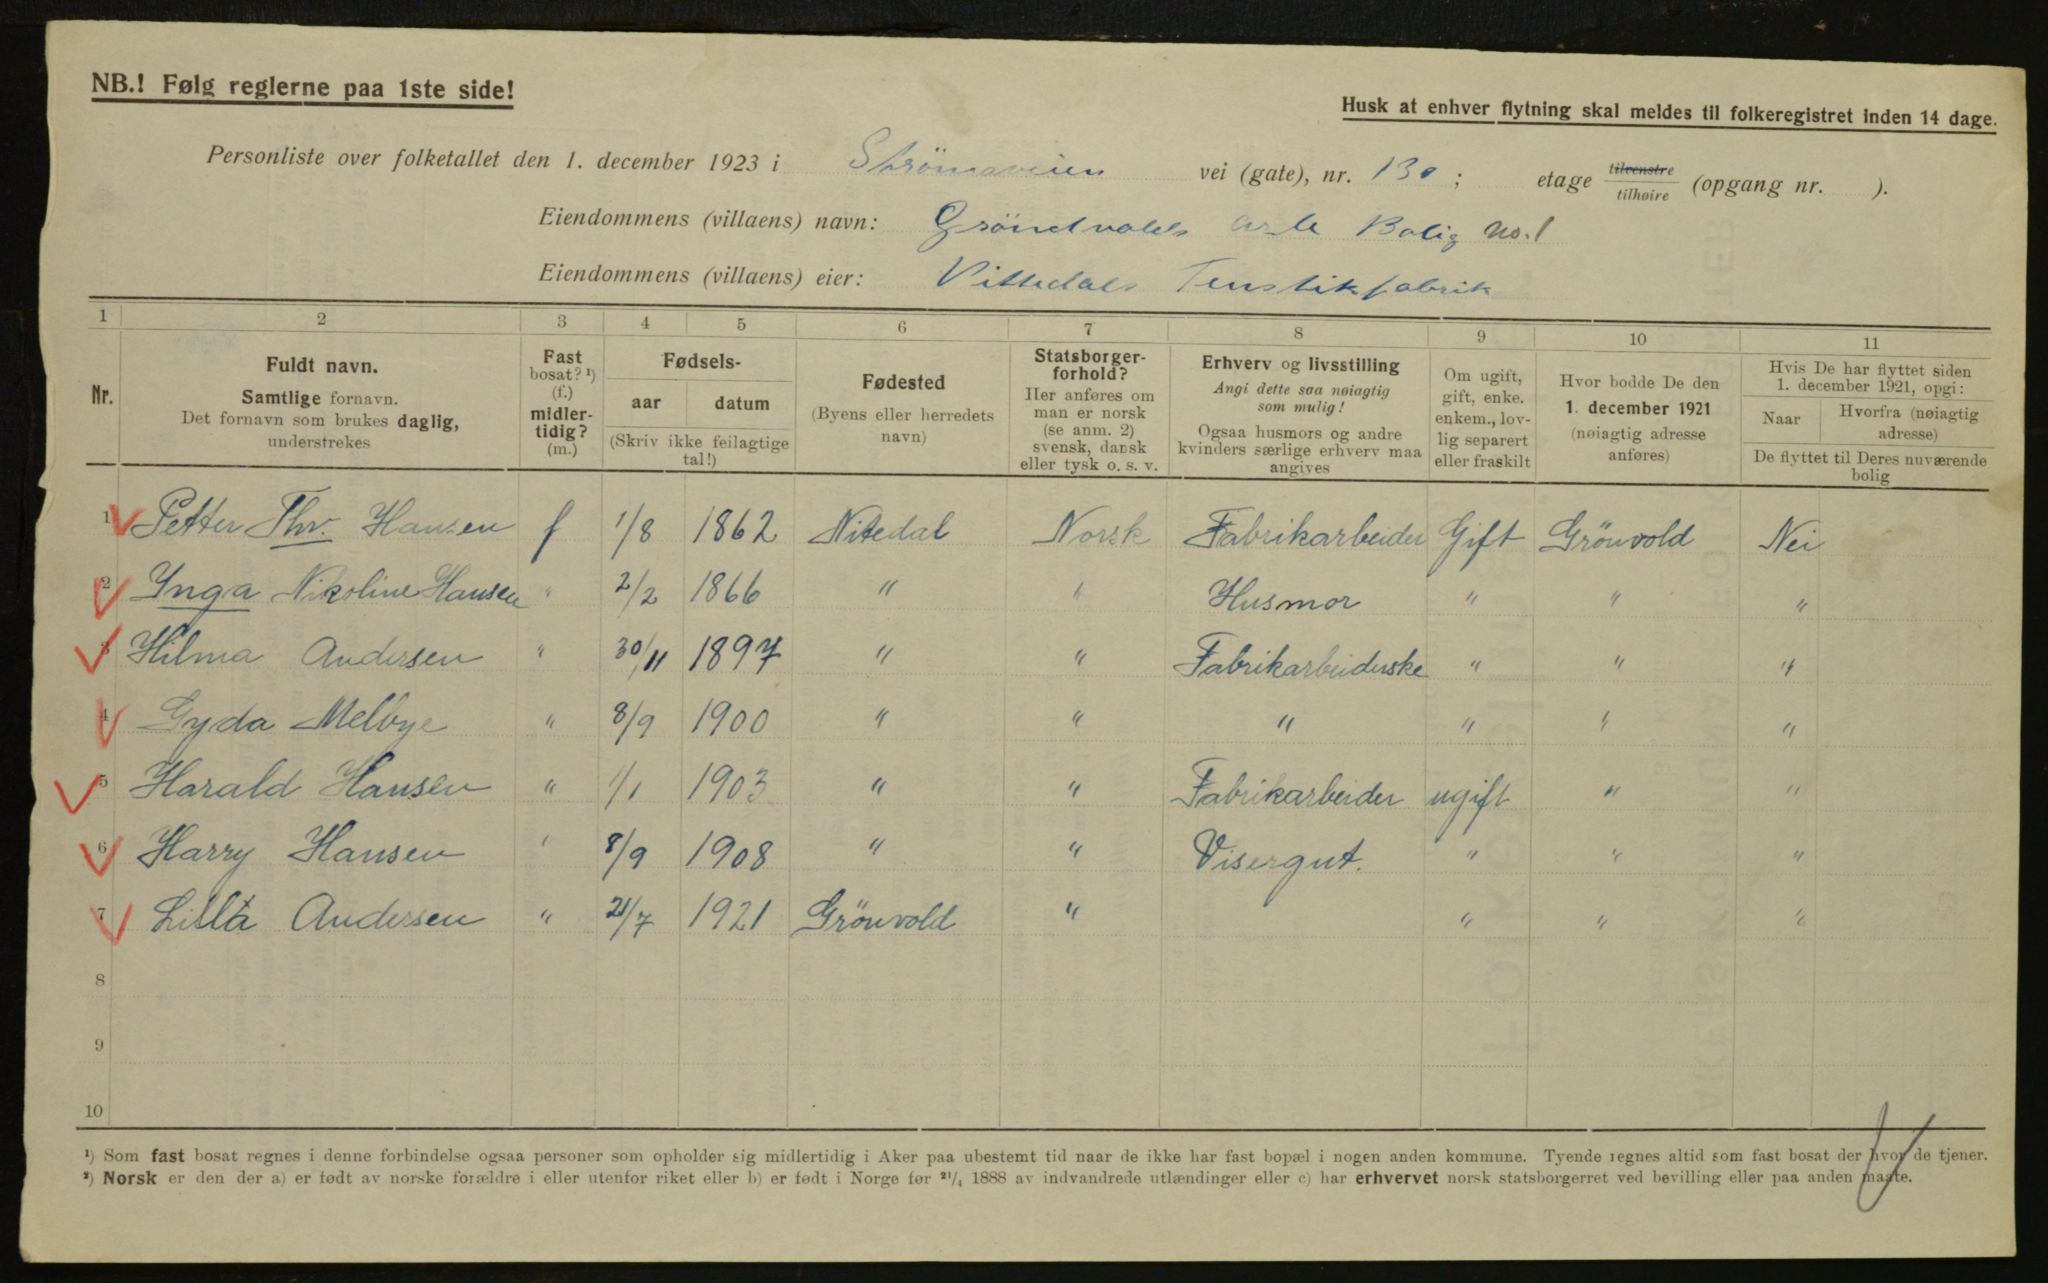 NB.! Følg reglerne paa 1ste side!
Husk at enhver flytning skal meldes til folkeregistret inden 14 dage.
Personliste over folketallet den 1. december 1923 i Strömsveien vei (gate), nr. 130; etage tilvenstre tilhøire (opgang nr. ).
Eiendommens (villaens) navn: Gröndvolds Bolig No. 1
Eiendommens (villaens) eier: Nittedals Tenstikfabrik
1 2 3 4 5 6 7 8 9 10 11
Nr.
Fuldt navn.
Samtlige fornavn.
Det fornavn som brukes daglig,
understrekes
Fast
bosat? ¹)
(f.)
midler-
tidig?
(m.)
Fødsels-
aar datum
(Skriv ikke feilagtige
tal!)
Fødested
(Byens eller herredets
navn)
Statsborger-
forhold?
Her anføres om
man er norsk
(se anm. 2)
svensk, dansk
eller tysk o. s. v.
Erhverv og livsstilling
Angi dette saa nøiagtig
som mulig!
Ogsaa husmors og andre
kvinders særlige erhverv maa
angives
Om ugift,
gift, enke.
enkem., lov-
lig separert
eller fraskilt
Hvor bodde De den
1. december 1921
(nøiagtig adresse
anføres)
Hvis De har flyttet siden
1. december 1921, opgi:
Naar Hvorfra (nøiagtig
adresse)
De flyttet til Deres nuværende
bolig
1 Petter Thv. Hansen f 1/8 1862 Nitedal Norsk Fabrikarbeider Gift Grönvold Nei
2 Ynga Nikoline Hansen " 2/2 1866 " " Husmor " " "
3 Hilma Andersen " 30/11 1897 " " Fabrikarbeiderske " " "
4 Gyda Melbye " 8/9 1900 " " " " " "
5 Harald Hansen " 1/1 1903 " " Fabrikarbeider ugift " "
6 Harry Hansen " 8/9 1908 " " Visergut. " " "
7 Lilla Andersen " 21/7 1921 Grönvold " " " "
8
9
10
¹) Som fast bosat regnes i denne forbindelse ogsaa personer som opholder sig midlertidig i Aker paa ubestemt tid naar de ikke har fast bopæl i nogen anden kommune. Tyende regnes altid som fast bosat der hvor de tjener.
²) Norsk er den der a) er født av norske forældre i eller utenfor riket eller b) er født i Norge før 21/4 1888 av indvandrede utlændinger eller c) har erhvervet norsk statsborgerret ved bevilling eller paa anden maate.